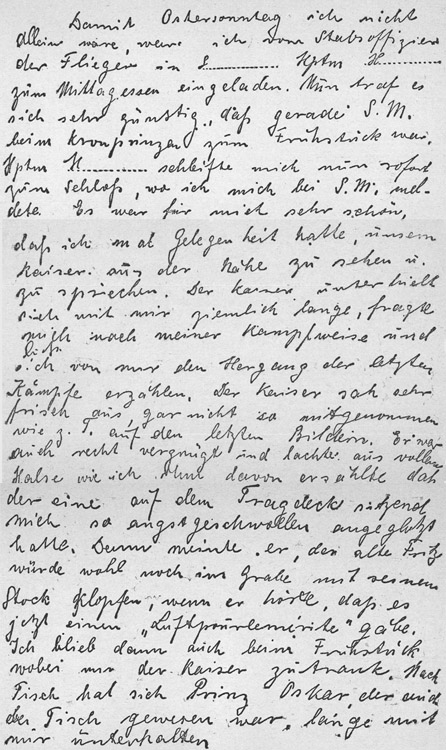 Damit Ostersonntag ich nicht
Alleine wäre, war ich vom Stabsoffizier
der Flieger in S............ Hptm H............
zum Mittagessen eingeladen. Nun traf es
sich sehr günstig, daß gerade S.M.
beim Kronprinzen zum Frühstück war.
Hptm H............ schleifte mich nun sofort
zum Schloß, wo ich mich bei S.M. mel-
dete. Es war für mich sehr schön,
daß ich mal Gelegenheit hatte, unsern
Kaiser aus der Nähe zu sehen u.
zu sprechen. Der Kaiser unterhielt
sich mit mir ziemlich lange, fragte
mich nach meiner Kampfweise und
ließ
sich von mir den Hergang der letzten
Kämpfe erzählen. Der Kaiser sah sehr
frisch aus, gar nicht so mitgenommen
wie z. T. auf den letzten Bildern. Er war
auch recht vergnügt und lachte aus vollem
Halse wie ich ihm davon erzählte daß
der eine auf dem Tragdeck sitzend
mich so angstgeschwollen angeglotzt
hatte. Dann meinte er, der alte Fritz
würde wohl noch im Grabe mit seinem
Stock klopfen, wenn er hörte, daß es
jetzt einen „Luftpourlemérite" gäbe.
Ich blieb dann auch beim Frühstück
wobei mir der Kaiser zutrank. Nach
Tisch hat sich Prinz Oskar, der auch
bei Tisch gewesen war, lange mit
mir unterhalten